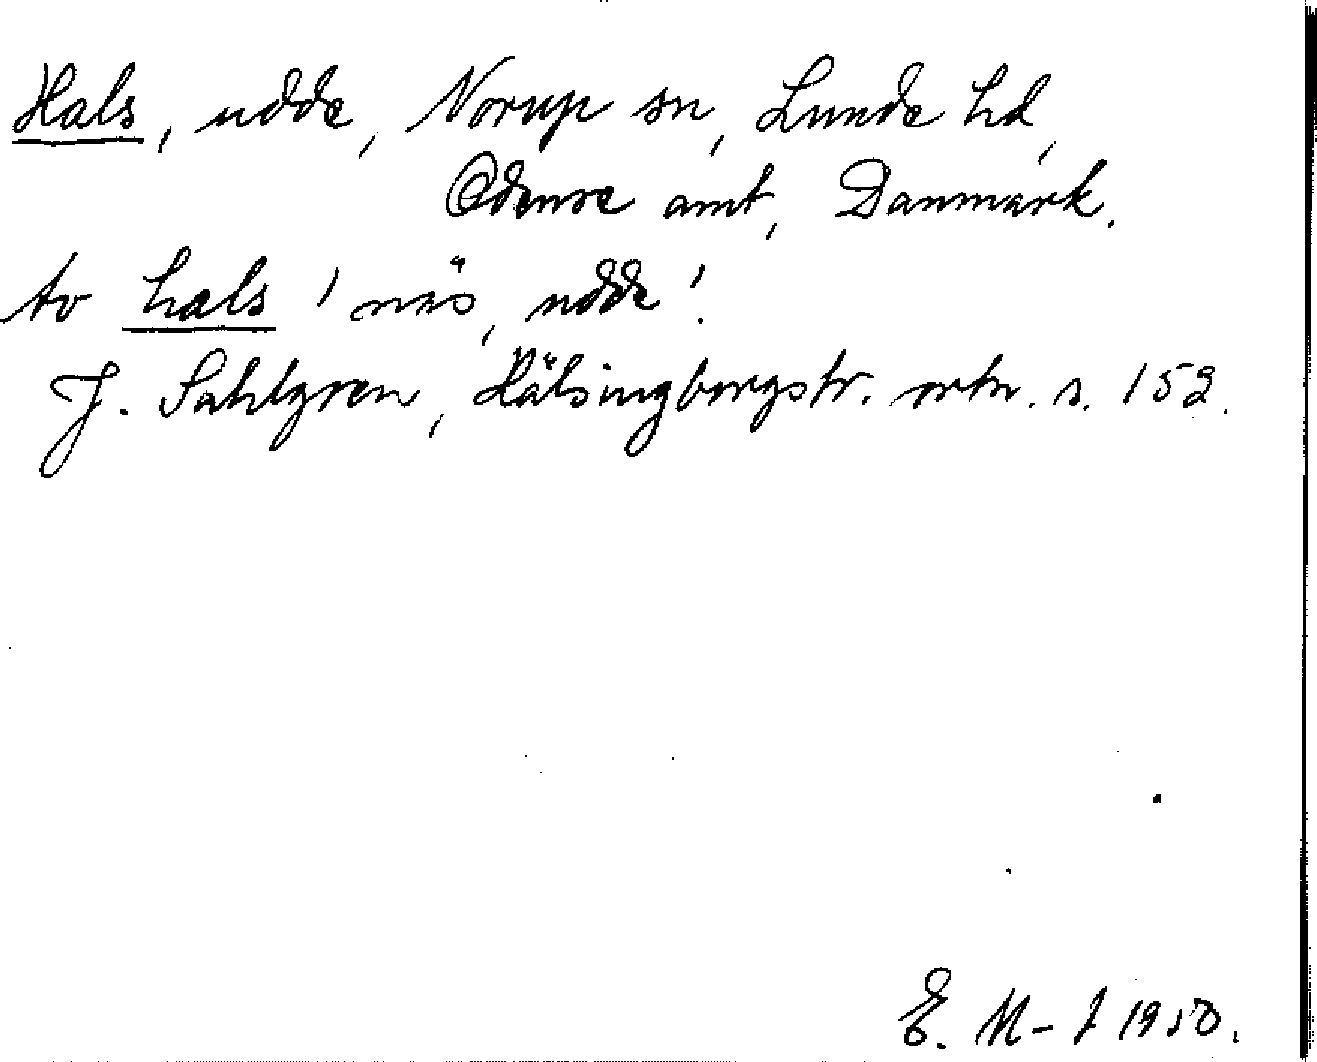 Hals, udde, Norup sn, Lunde hd,
Odense amt, Danmark.
Av hals 'näs, udde'.
J. Sahlgren, Hälsingborgstr. ortn. s. 152.
E. M-t 1950.